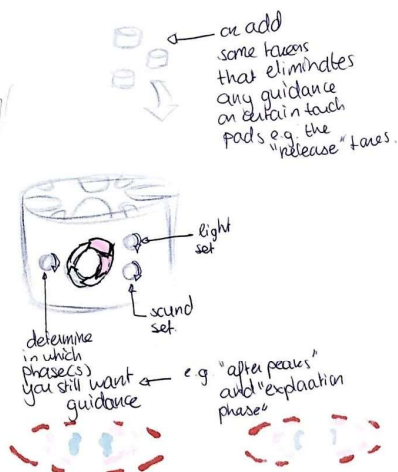 or add
some tokens
that eliminates
any guidance
on certain touch
pads e.g. the
"release" tones.
light
set
sound
set.
determine
in which
phase(s)
you still want
guidance
e.g. "after peaks"
and "exploration
phase"